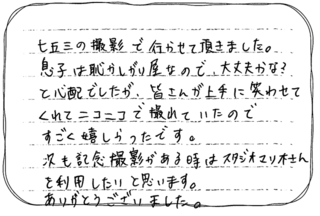 七五三の撮影で行かせて頂きました。
息子は恥かしがり屋なので、大丈夫かな?
と心配でしたが、皆さんが上手に笑わせて
くれてニコニコで撮れていたので
すごく嬉しらったです。
次も記念撮影がある時はスタジオマリオさん
を利用したいと思います。
ありがとうございました。